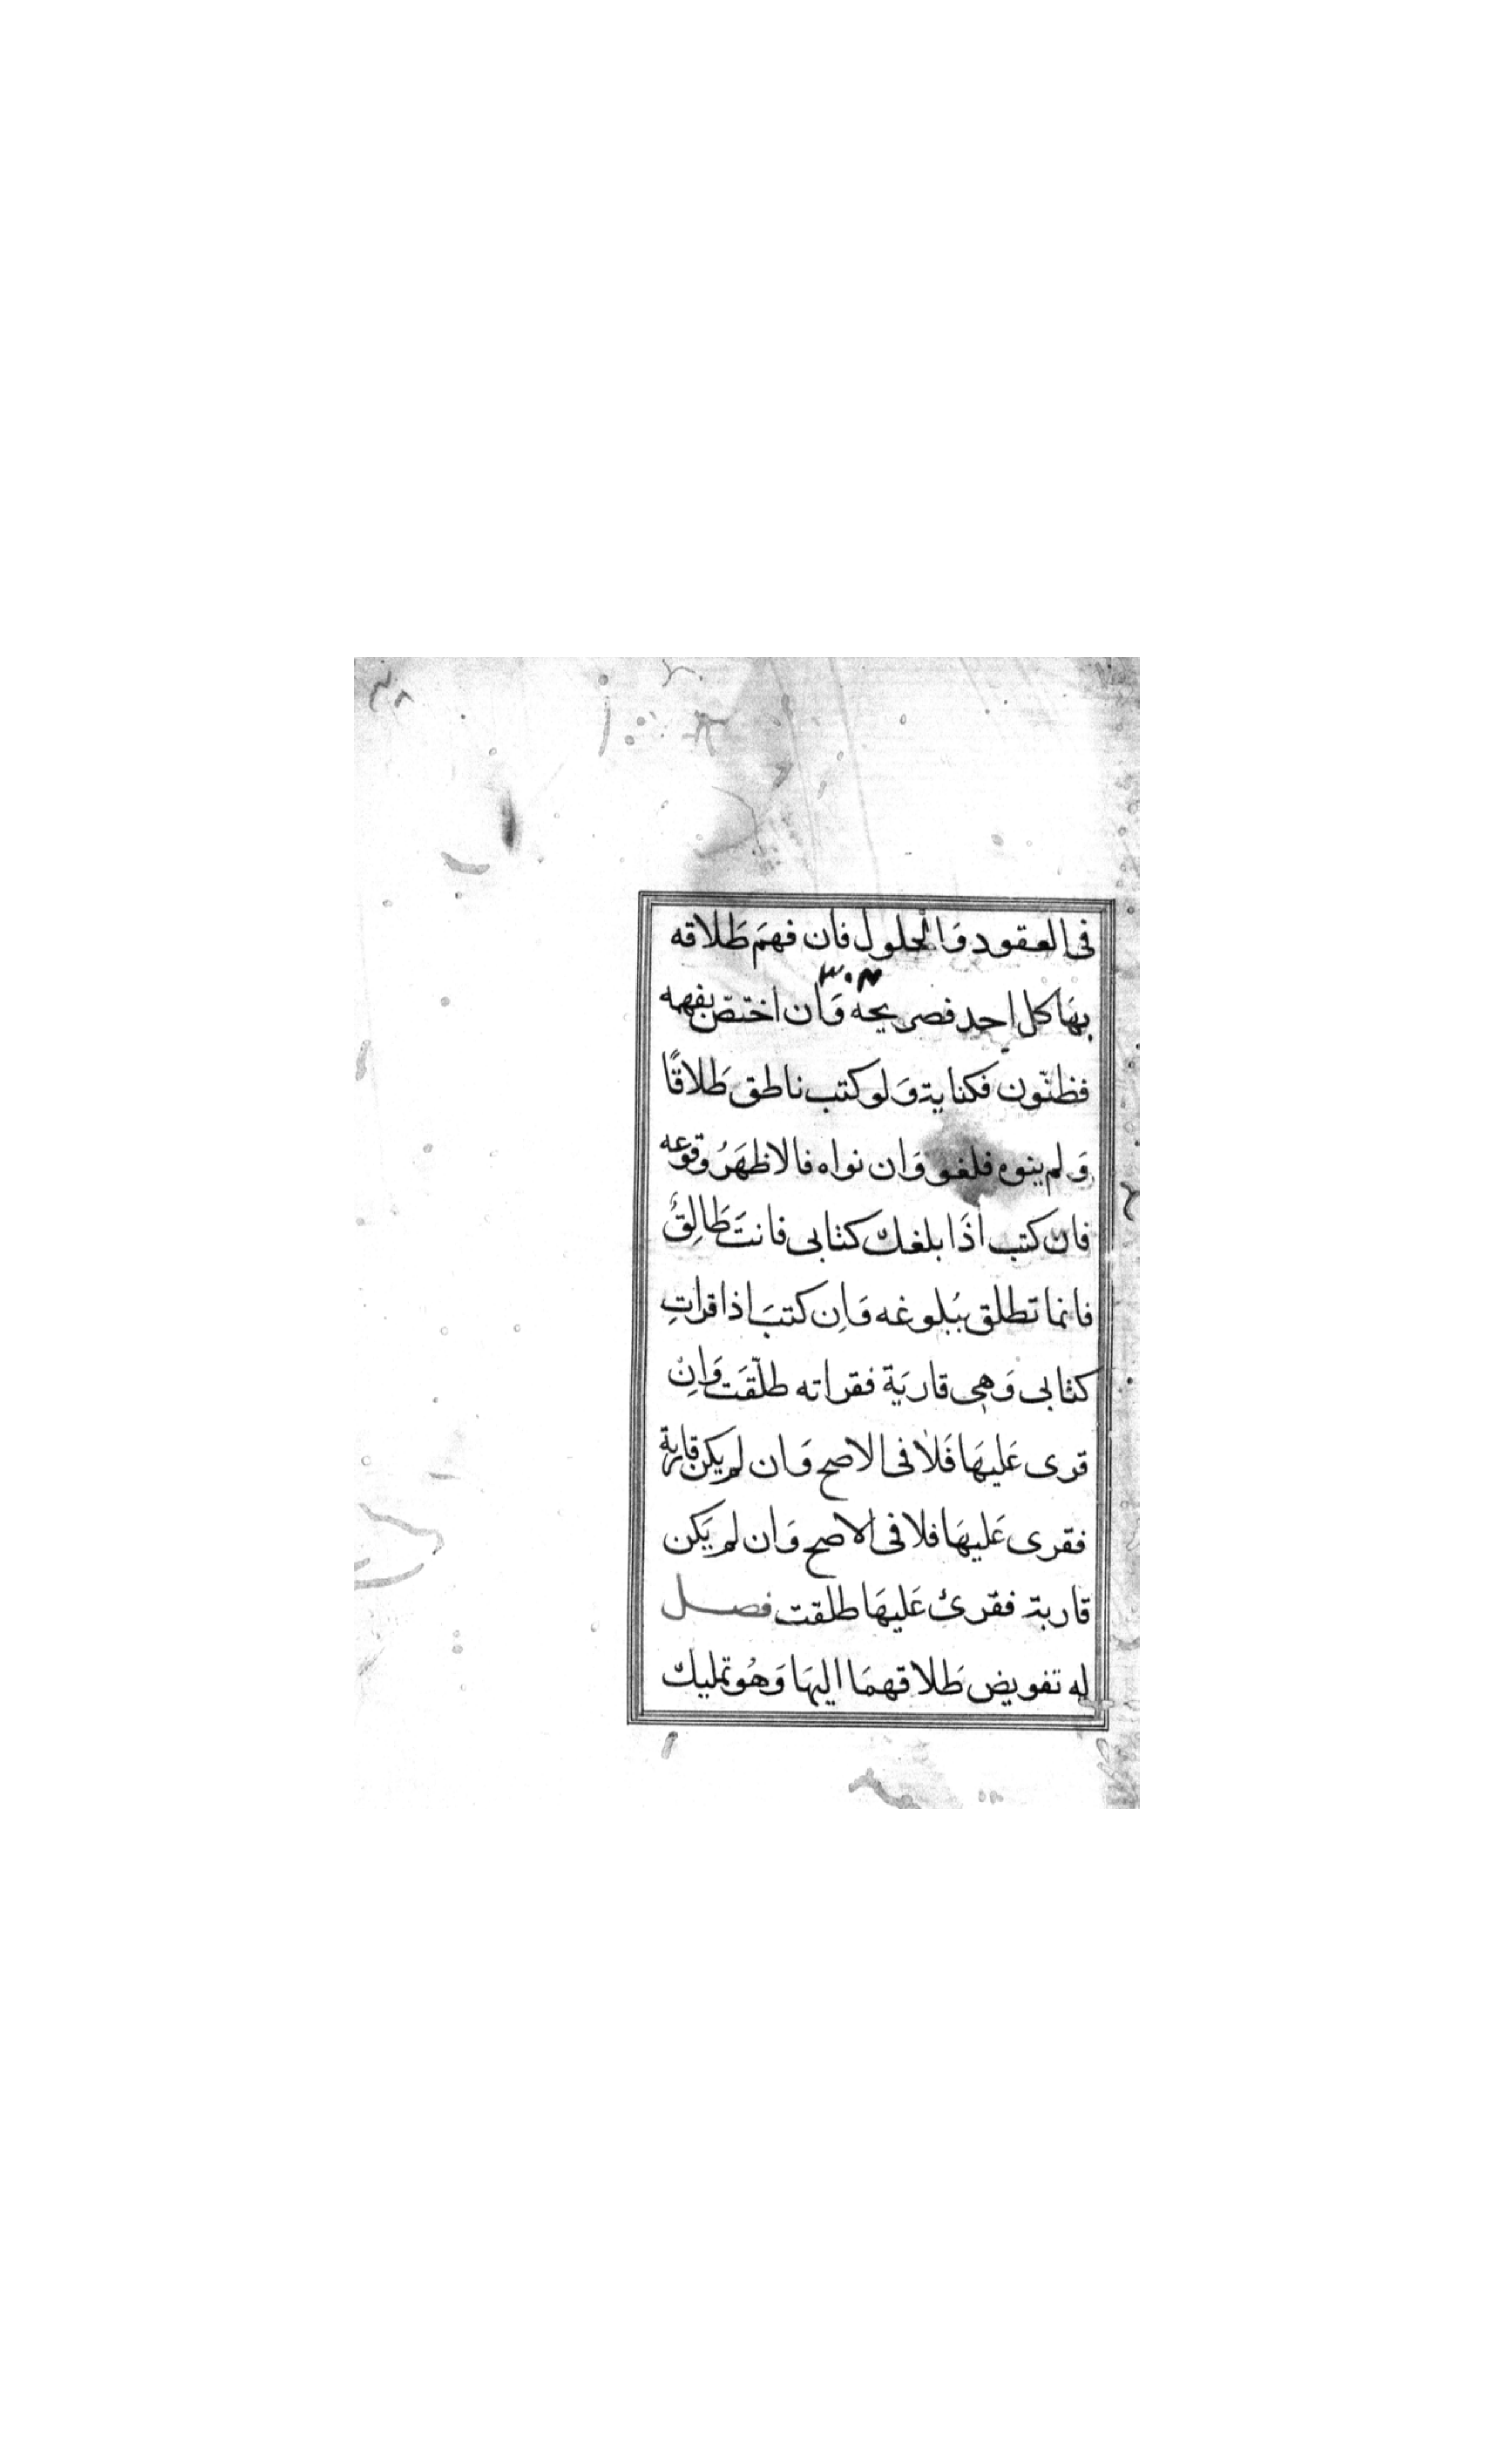 فى العقود وَالْحلول فان فهمَ طَلاقه
٣٠٣
بهَا كل احد فصريحه وَان اختصّ بفهمه
فظنّون فكناية وَلو كتب ناطق طَلاقًا
وَلم ينوه فلغو وَان نواه فالاظهَرُ وقوعه
فان كتب اذَا بلغك كتابى فانتَ طَالِقٌ
فانما تطلق ببُلوغه وَاِن كتبَ اذا قراتِ
كتابى وَهِى قاريَة فقراته طلّقَت وَانْ
قرى عَليهَا فَلاَ فى الاصح وَان لم يكن قارية
فقرى عَليهَا فلا فى الاصح وَان لم يَكن
قارية فقرئ عَليهَا طلقت فصل
له تفويض طَلاقهمَا اليهَا وَهُو تمليك